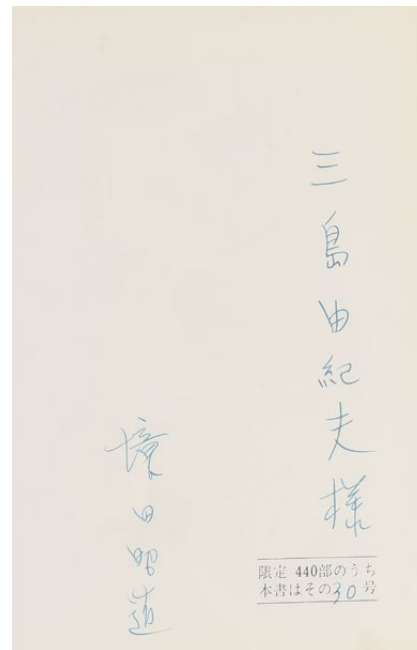 三島由紀夫様
境田昭造
限定 440部のうち
本書はその30号